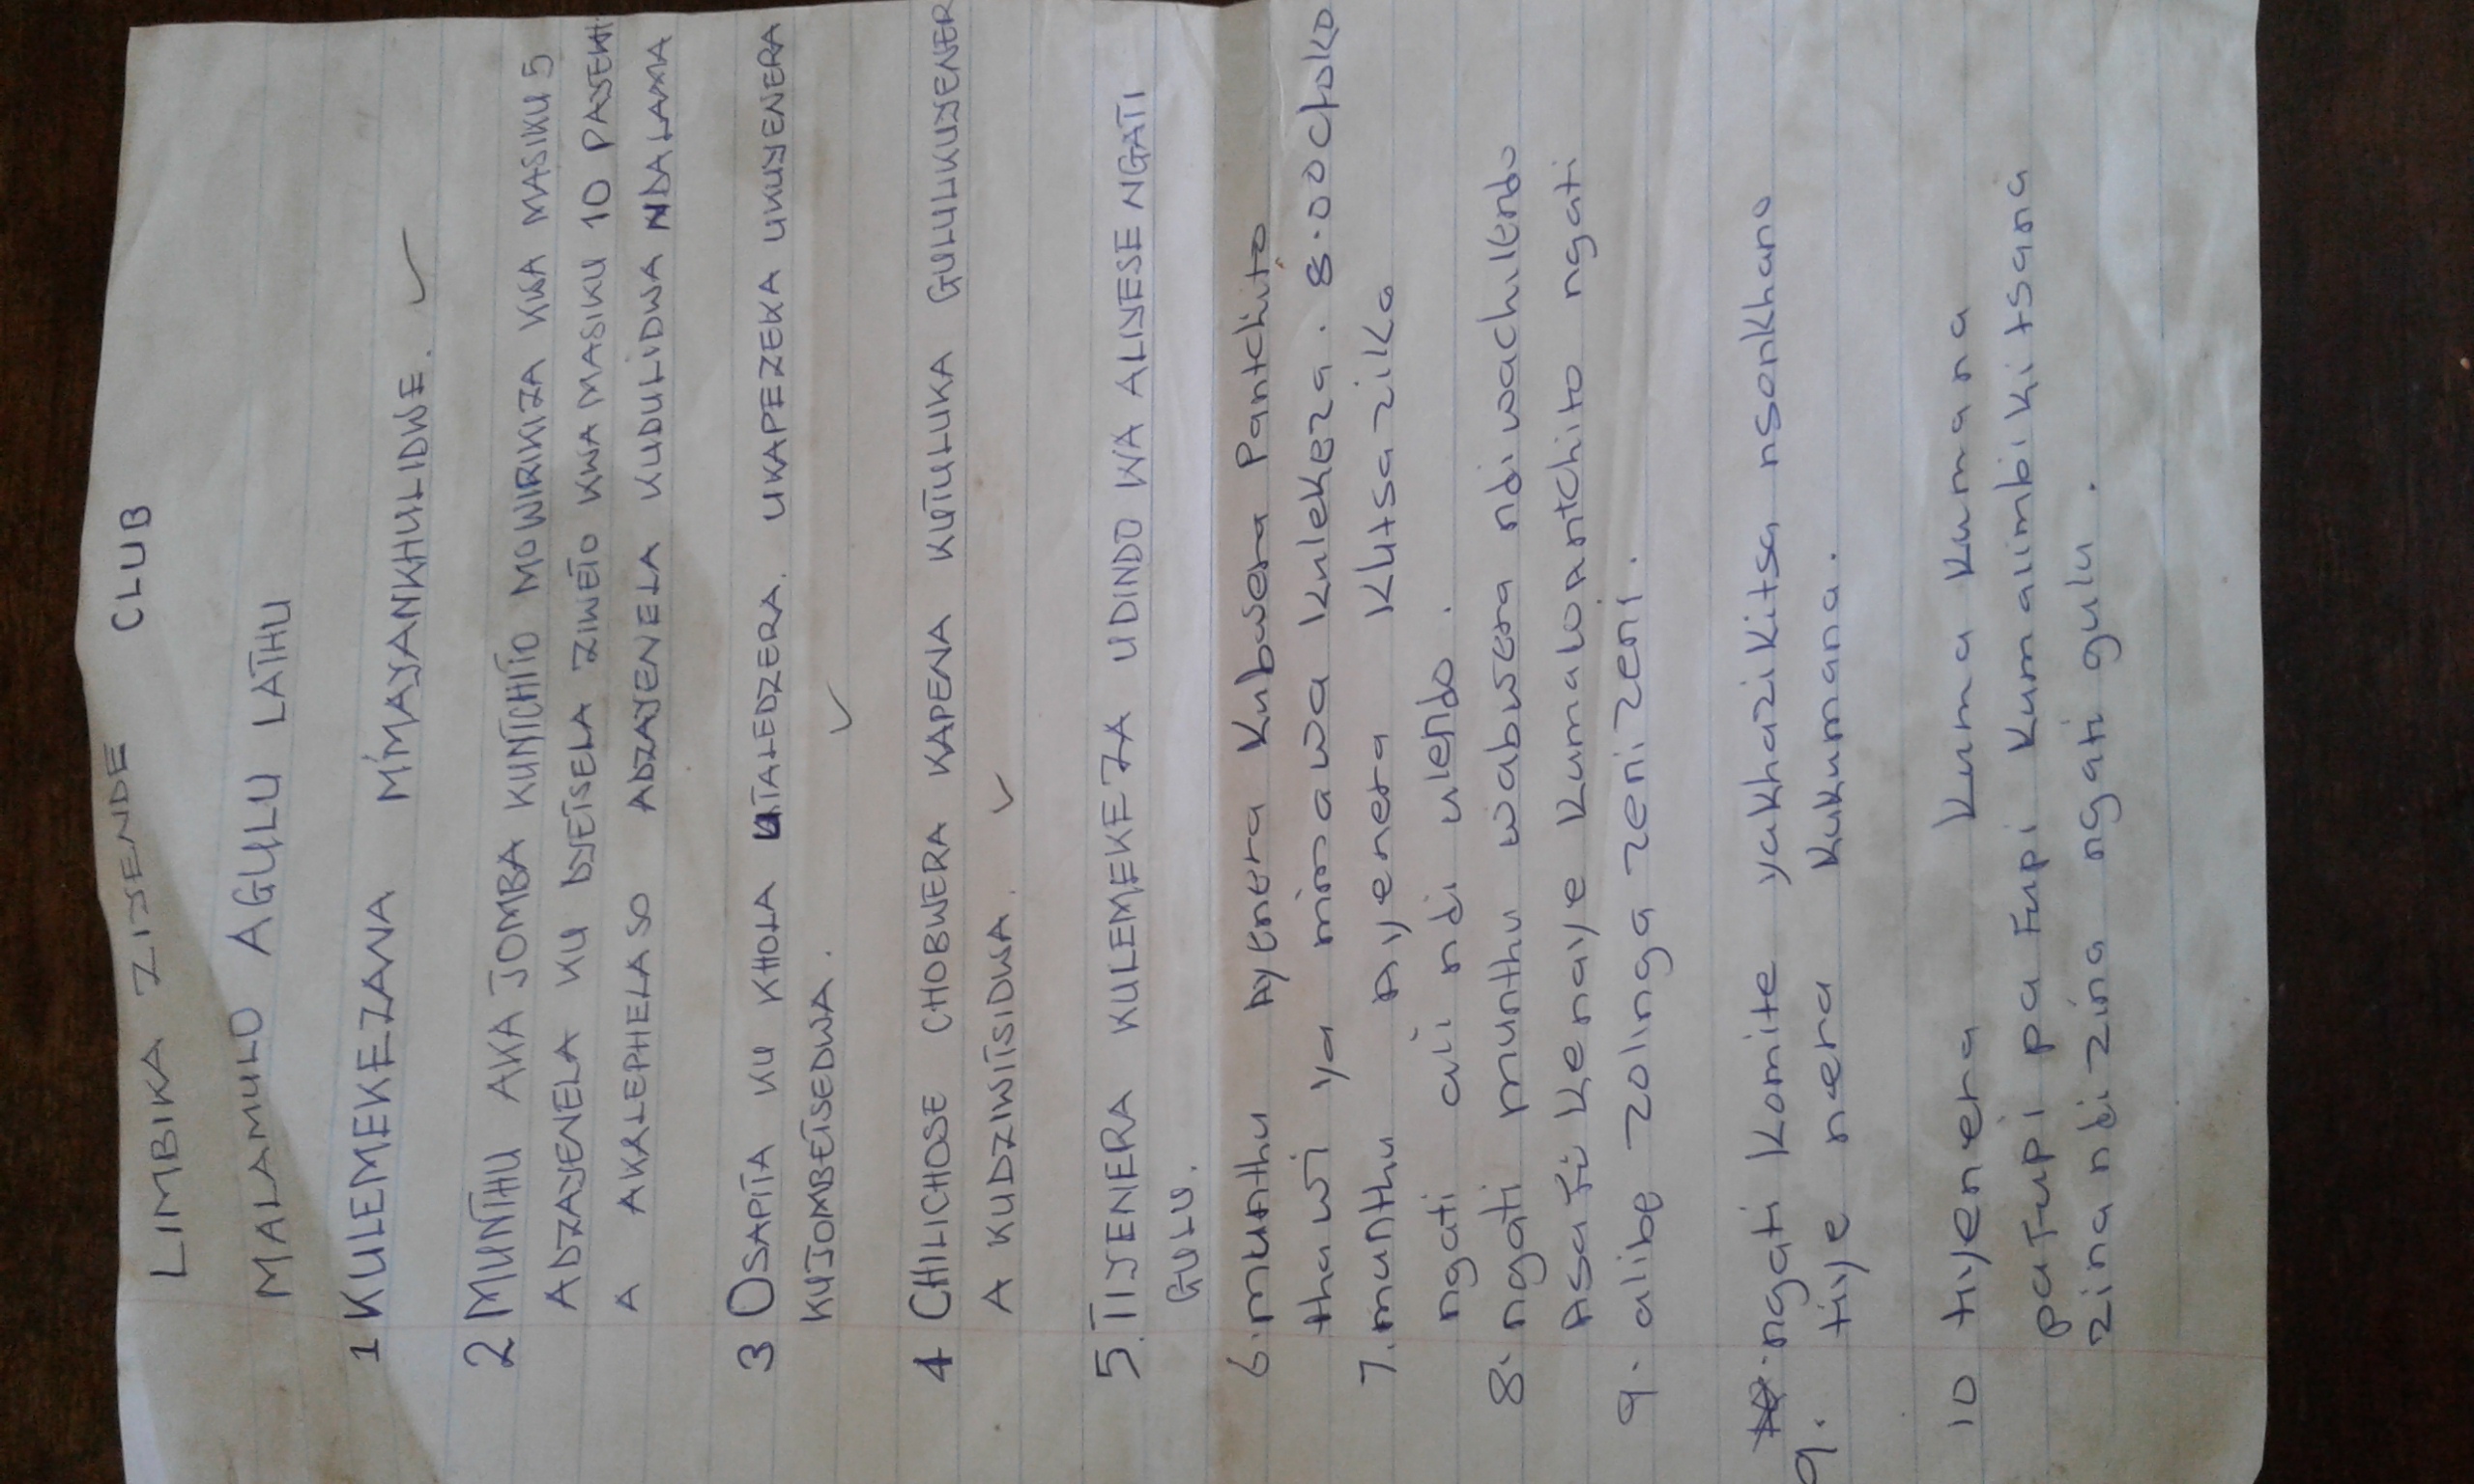 LIMBIKA ZIYENDE CLUB
MALAMULO AGULU LATHU
1 KULEMEKEZANA M'MAYANKHULIDWE.
2 MUNTHU AKA JOMBA KUNTCHITO MOWIRIKIZA KWA MASIKU 5
ADZAYENELA KU DYETSELA ZIWETO KWA MASIKU 10 PAYEKHA
A AKALEPHELASO ADZAYENELA KUDULIDWA NDALAMA
3 OSAPITA KU KHOLA UTALEDZERA. UKAPEZEKA UKUYENERA
KUJOMBETSEDWA.
4 CHILICHOSE CHOBWERA KAPENA KUTULUKA GULULIKUYENER
A KUDZIWITSIDWA.
5. TIYENERA KULEMEKEZA UDINDO WA ALIYESE NGATI
GULU.
6. munthu ayenera kubwera Pantchito
thawi ya mmawa kulekeza. 8.00 Cloko
7. munthu Ayenera Klutsa zika
ngati ali ndi ulendo.
8. ngati munthu wabwera ndi wachilendo
Asafikenaye kumalo antchito ngati
9. alibe zolinga zenizeni.
9. ngati komite yakhazikitsa nsonkhano
tiyenera kukumana.
10 tiyenera kuma kumana
pafupi pa fupi kumalimbikitsana
zina ndi zina ngati gulu.